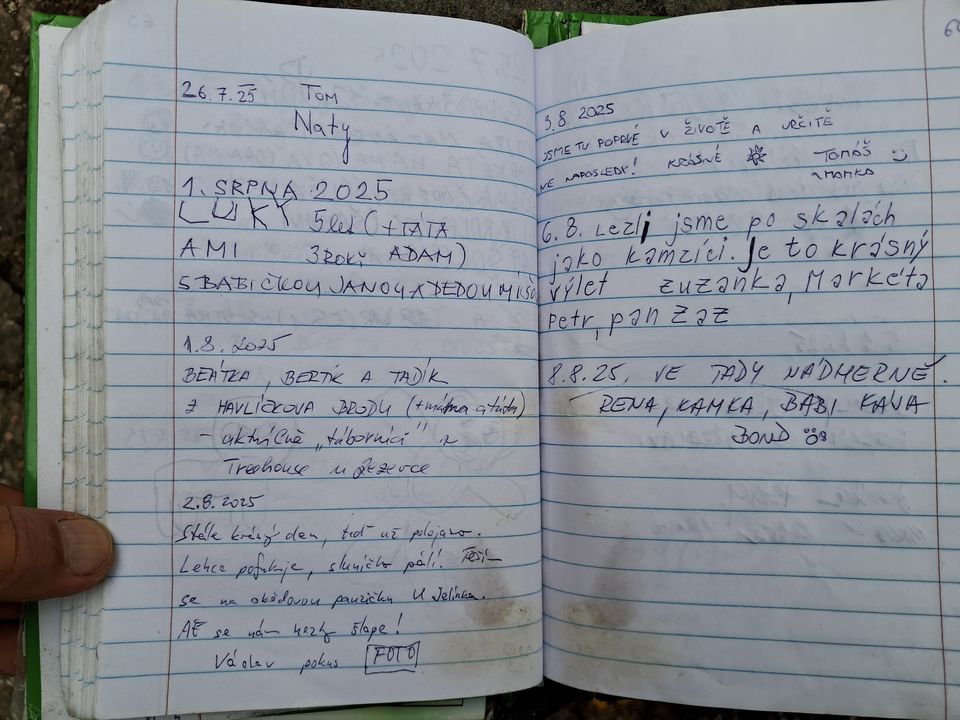 26.7.25 Tom
Naty
1. SRPNA 2025
LUKY 5let (+TÁTA
AMI 3ROKY ADAM)
S BABIČKOU JANOU A DĚDOU
1.8.2025
BEÁTKA, BERTÍK A TADÍK
Z HAVLÍČKOVA BRODU (+máma a táta)
- aktuálně „táborníci" z
Treehouse u
2.8.2025
Stále krásný den, teď už polojasno.
Lehce pofukuje, sluníčko pálí! Těším
se na obědovou pauzičku U Jelínka.
AŤ se nám hezky šlape!
Václav pokus FOTO
3.8 2025
JSME TU POPRVÉ V ŽIVOTĚ A URČITĚ
NE NAPOSLEDY! KRÁSNÉ TOMÁŠ
MAMKA
6.8. Lezli jsme po skalách
jako kamzíci. je to krásný
výlet zuzanka, Markéta
Petr, pan zaz
8.8.25. VE TADY NÁDHERNĚ.
RENA, KAMKA, BÁBI KÁVA
BOND